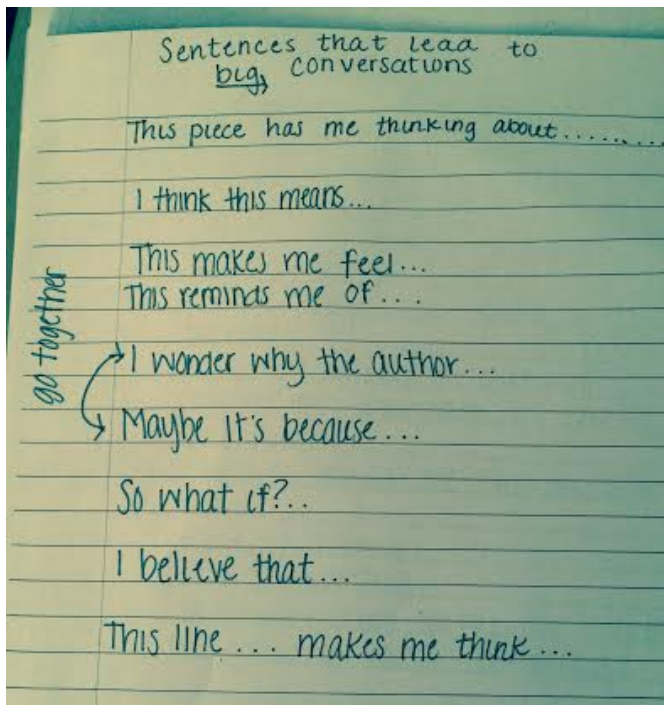 Sentences that lead to
big, conversations
This piece has me thinking about.........
I think this means...
This makes me feel...
This reminds me of...
go together
I wonder why the author...
Maybe it's because...
So what if?..
I believe that...
This line ... makes me think...